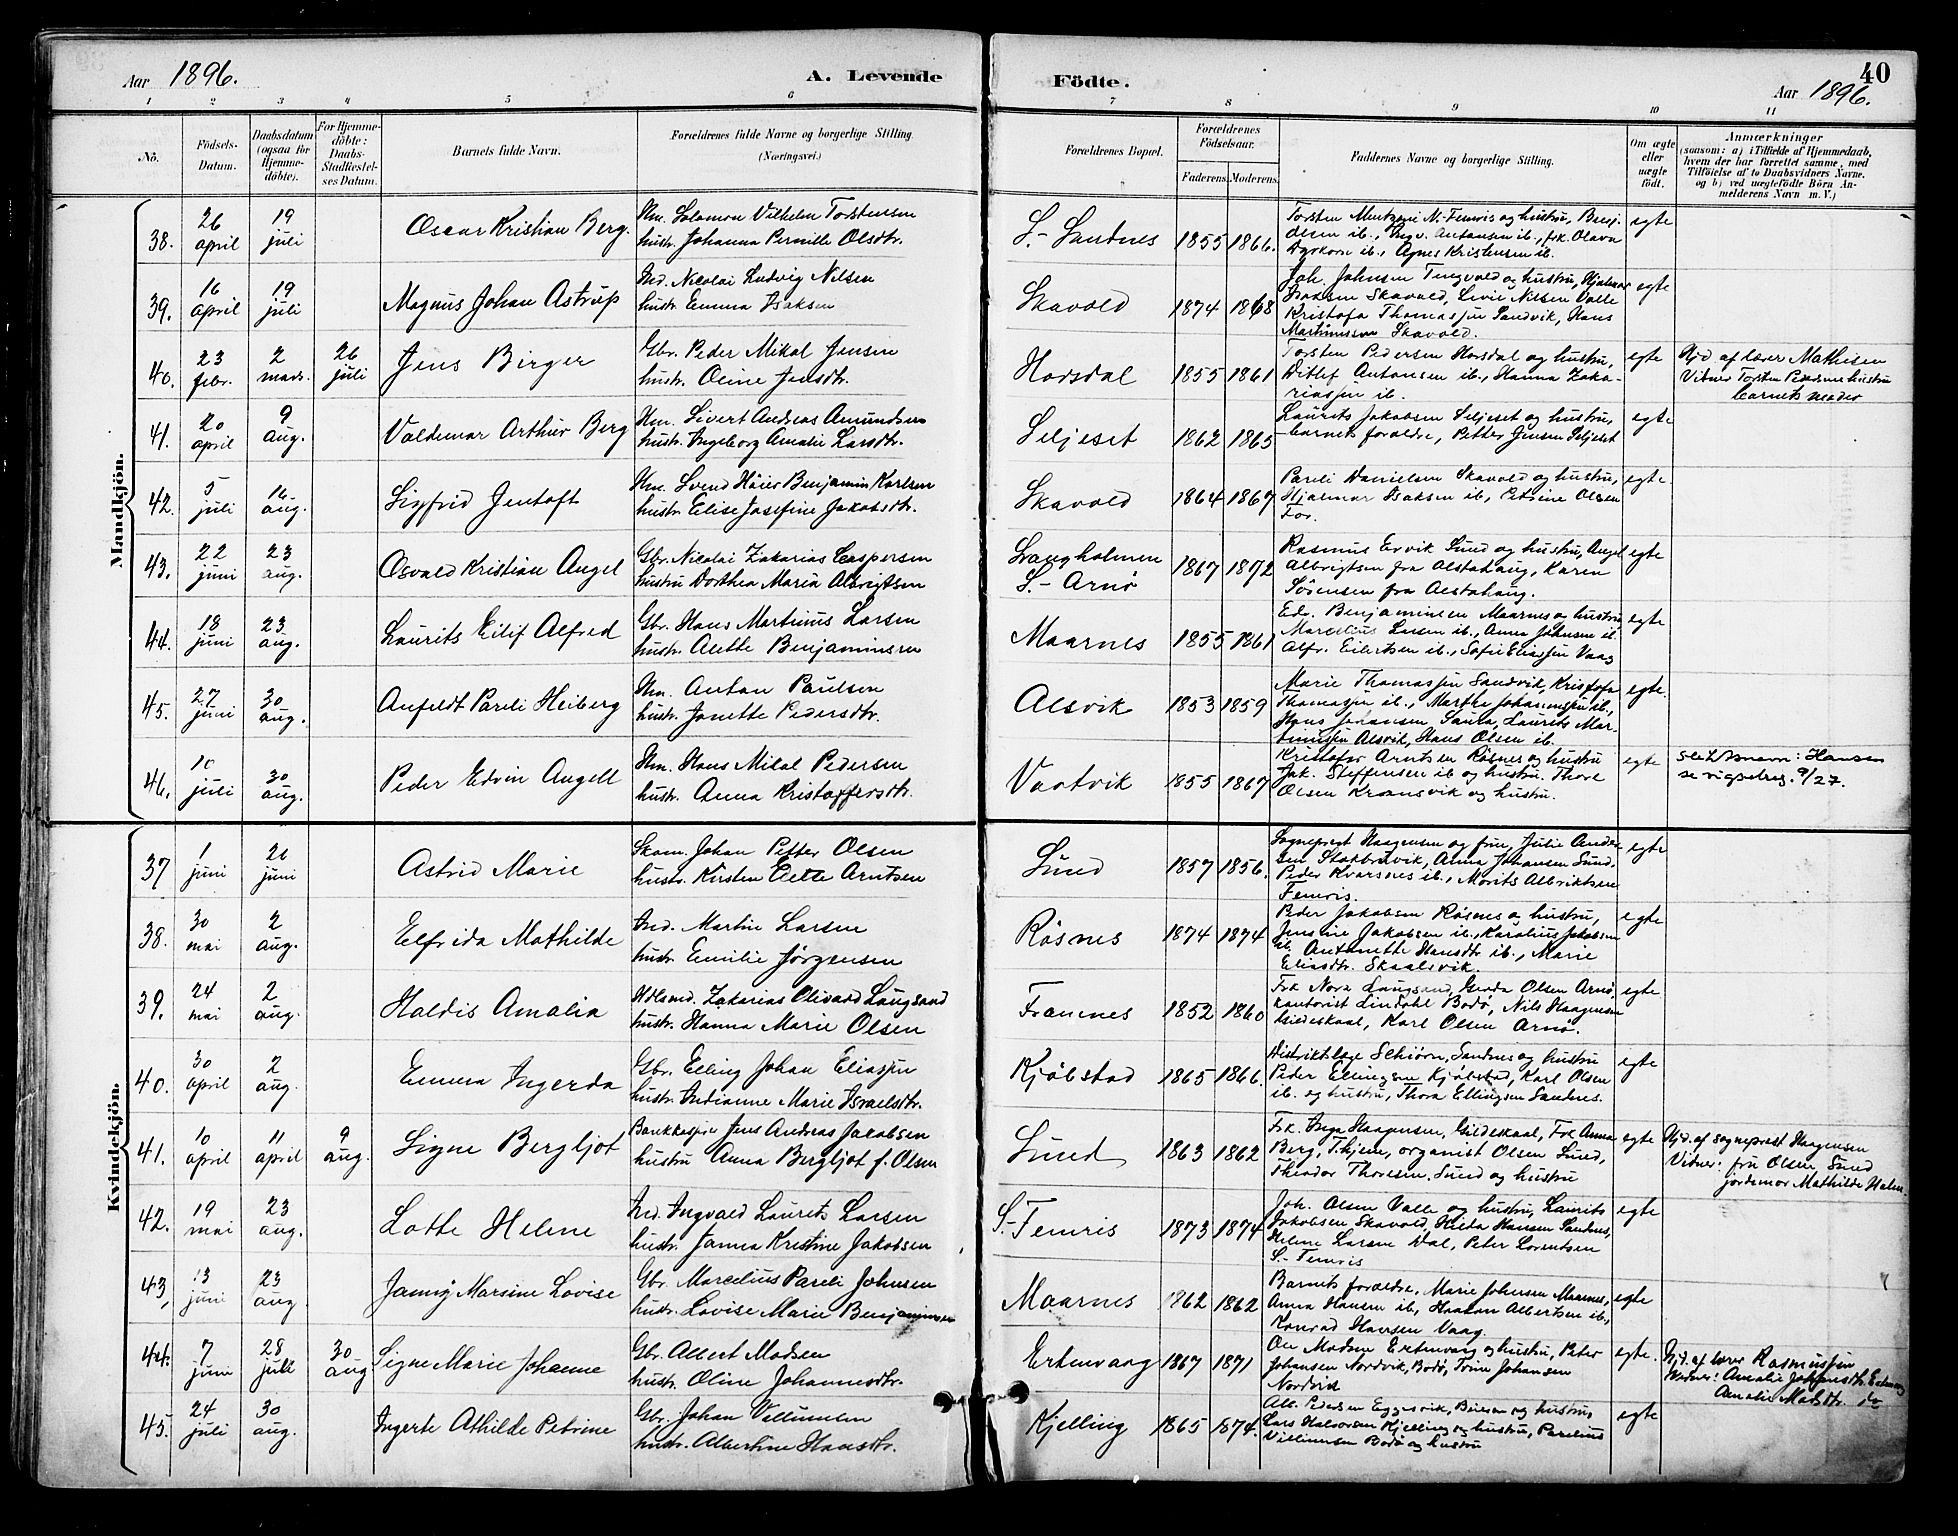 Aar 1896.
A. Levende
Födte.
40
Aar 1896.
1 2 3 4 5 6 7 8 9 10 11
No.
Födsels-Datum.
Daabsdatum (ogsaa for Hjemme-döbte).
For Hjemme-döbte: Daabs-Stadfæstel-ses Datum.
Barnets fulde Navn.
Forældrenes fulde Navne og borgerlige Stilling. (Næringsvei.)
Forældrenes Bopæl.
Forældrenes Födselsaar.
Faderens. Moderens.
Faddernes Navne og borgerlige Stilling.
Om ægte eller uægte födt.
Anmærkninger
(saasom: a) i Tilfælde af Hjemmedaab, hvem der har forrettet samme, med Tilföielse af to Daabsvidners Navne. og b) ved uægtefödte Börn Anmelderens Navn m. V.)
Mandkjön.
38. 26 april 19 juli Oscar Kristian Berg. Hm. Solomon Vilhelm Torstensen
hustr. Johanna Pernille Olsdtr. S.- Sandnes 1855 1866. egte
39. 16 april 19 juli Magnus Johan Astrup Ind. Nicolai Ludvig Nilsen
hustr. Emma Isaksen Skavold 1874 1868 Joh. Johnsen Tengvold og hustru, Hjalmar
Isaksen Skavold, Nilsen Valle
Kristofa Thomassjen Sandvik, Hans
Martinussen Skavold. egte
40. 23 febr. 2 mars. 26 juli Jens Birger Gbr. Peder Mikal Jensen
hustr. Oline Jensdtr. Horsdal 1855 1861 Torsten Pedersen Horsdal og hustru,
Ditlef Antonsen ib., Hanna Zaka-
riassen ib. egte Hjd. af lærer Mathisen
Vidner Torsten Pedersens hustru
barnets moder
41. 20 april 9 aug. Valdemar Arthur Berg Hm. Sivert Andreas Amundsen
hustr. Ingeborg Amalie Larsdtr. Seljeset 1862 1865 Laurits Jakobsen Seljeset og hustru,
barnets forældre, Petter Jensen Seljeset egte
42. 5 juli 16 aug. Sigfrid Jentoft Hm. Svend Höier Benjamin Karlsen
hustr. Elise Josefine Jakobsdtr. Skavold 1864 1867 Pareli Danielsen Skavold og hustru,
Hjalmar Isaksen ib., Petrine Olsen
For. egte
43. 22 juni 23 aug. Osvald Kristian Angel Gbr. Nicolai Zakarias Caspersen
hustru Dorthea Maria Albrigtsen Langholmen
S.- Arnø 1867 1872 Rasmus Ervik Sund og hustru, Angel
Albrigtsen fra Alstahaug, Karen
Sørensen fra Alstahaug. egte
44. 18 juni 23 aug. Laurits Eilif Alfred Gbr. Hans Martinus Larsen
hustr. Anette Benjaminsen Maarnes 1855 1861 Edv. Benjaminsen Maarnes og hustru
Marcelius Larsen ib., Anna Johnsen ib
Alfr. Eilertsen ib., Sofie Eliassen Vaag egte
45. 27 juni 30 aug. Anfeldt Pareli Heiberg Hm. Anton Paulsen
hustr. Jonette Pedersdtr. Alsvik 1853 1859 Marie Thomassjen Sandvik, Kristofa
Thomassjen ib., Martha Johannsjen ib.,
Hans Johansen Sanda, Laurits Mar-
tinussen Alsvik, Hans Olsen ib. egte.
46. 10 juli 30 aug. Peder Edvin Angell Hm. Hans Mikal Pedersen
hustr. Anna Kristoffersdtr. Vartvik 1855 1867 Kristofer Arntsen Røsnes og hustru
Jak. Steffensen ib og hustru. Thore
Olsen Kransvik og hustru. egte Slektsnavn: Hansen
se vigselreg. 9/27.
Kvindekjön.
37 1 juni 21 juni Astrid Marie Johan Petter Olsen
hustr. Kirsten Elette Arntsen Sund 1857 1856. Sogneprest Haagensen og frue, Julie Ander-
sen Anna Johansen Sund,
Peder Kvarsnes ib., Morits Albriktsen
Femris. egte
38. 30 mai 2 aug. Elfrida Mathilde Ind. Martin Larsen
hustr. Emilie Jørgensen Røsnes 1874 1874 Peder Jakobsen Røsnes og hustru,
Jensine Jakobsen ib., Karolius Jakobsen
ib. Antonette Hansdtr ib., Marie
Eliasdtr. Skaalsvik. egte
39. 24 mai 2 aug. Haldis Amalia Hdlsmd. Zakarias Olivard Langsand
hustr. Hanna Marie Olsen Framnes 1852 1860 Frk Nora Langsand, Gerda Olsen Arnø,
kontorist Lindahl Bodø, Nils Haagensen
Gildeskaal, Karl Olsen Arnø. egte
40. 30 april 2 aug. Emma Ingerda Gbr. Elling Johan Eliassen
hustr. Indianne Marie Israelsdtr. Kjøbstad 1865 1866. Distriktslæge Schiørn, Sandnes og hustru
Peder Ellingsen Kjøbstad, Karl Olsen
ib. og hustru, Thora Ellingsen Sandnes. egte
41. 10 april 11 april 9 aug. Signe Bergljot Jens Andreas Jakobsen
hustru Anna Bergljot f. Olsen Sund 1863 1862 Frk. Inga Haagensen, Gildeskaal, Frk Anna
Berg, T.hjem, organist Olsen Sund,
Theodor Thoresen, Sund og hustru egte Hjd. af sogneprest Haagensen
Vidner: fru Olsen, Sund
jordemor Mathilde Holm.
42. 19 mai 23 aug. Lotte Helene Ind. Ingvald Laurits Larsen
hustr. Janna Kristine Jakobsen S.- Femris 1873 1874 Joh. Olsen Valle og hustru, Laurits
Jakobsen Skavold, Hilda Hansen Sandnes,
Helene Larsen Dal, Peter Lorentsen
S.- Femris egte
43, 13 juni 23 aug Marsine Lovise Gbr. Marcelius Pareli Johnsen
hustr. Lovise Marie Benjaminsen Maarnes 1862 1862 Barnets forældre, Marie Johnsen Maarnes,
Anna Hansen ib., Albertsen ib.,
Konrad Hansen Vaag. egte
44. 7 juni 28 juli 30 aug Signe Marie Johanne Gbr. Albert Madsen
hustr. Oline Johannesdtr. Ertenvaag 1867 1871 Ole Madsen Ertenvaag og hustru, Peter
Johansen Nordvik, Bodø, Trine Johansen
Nordvik egte. Hjd. af lærer Rasmussen
Vidner: Amalie
Amalie Matsdtr. do
45. 24 juli 30 aug. Ingerte Athilde Petrine Gbr. Johan Villumsen
hustr. Albertine Hansdtr. Kjelling 1865 1874. Alb. Pedersen Eggesvik, Beiarn og hustru,
Lars Halvorsen Kjelling og hustru, Parelius
Villumsen Bodø og hustru egte